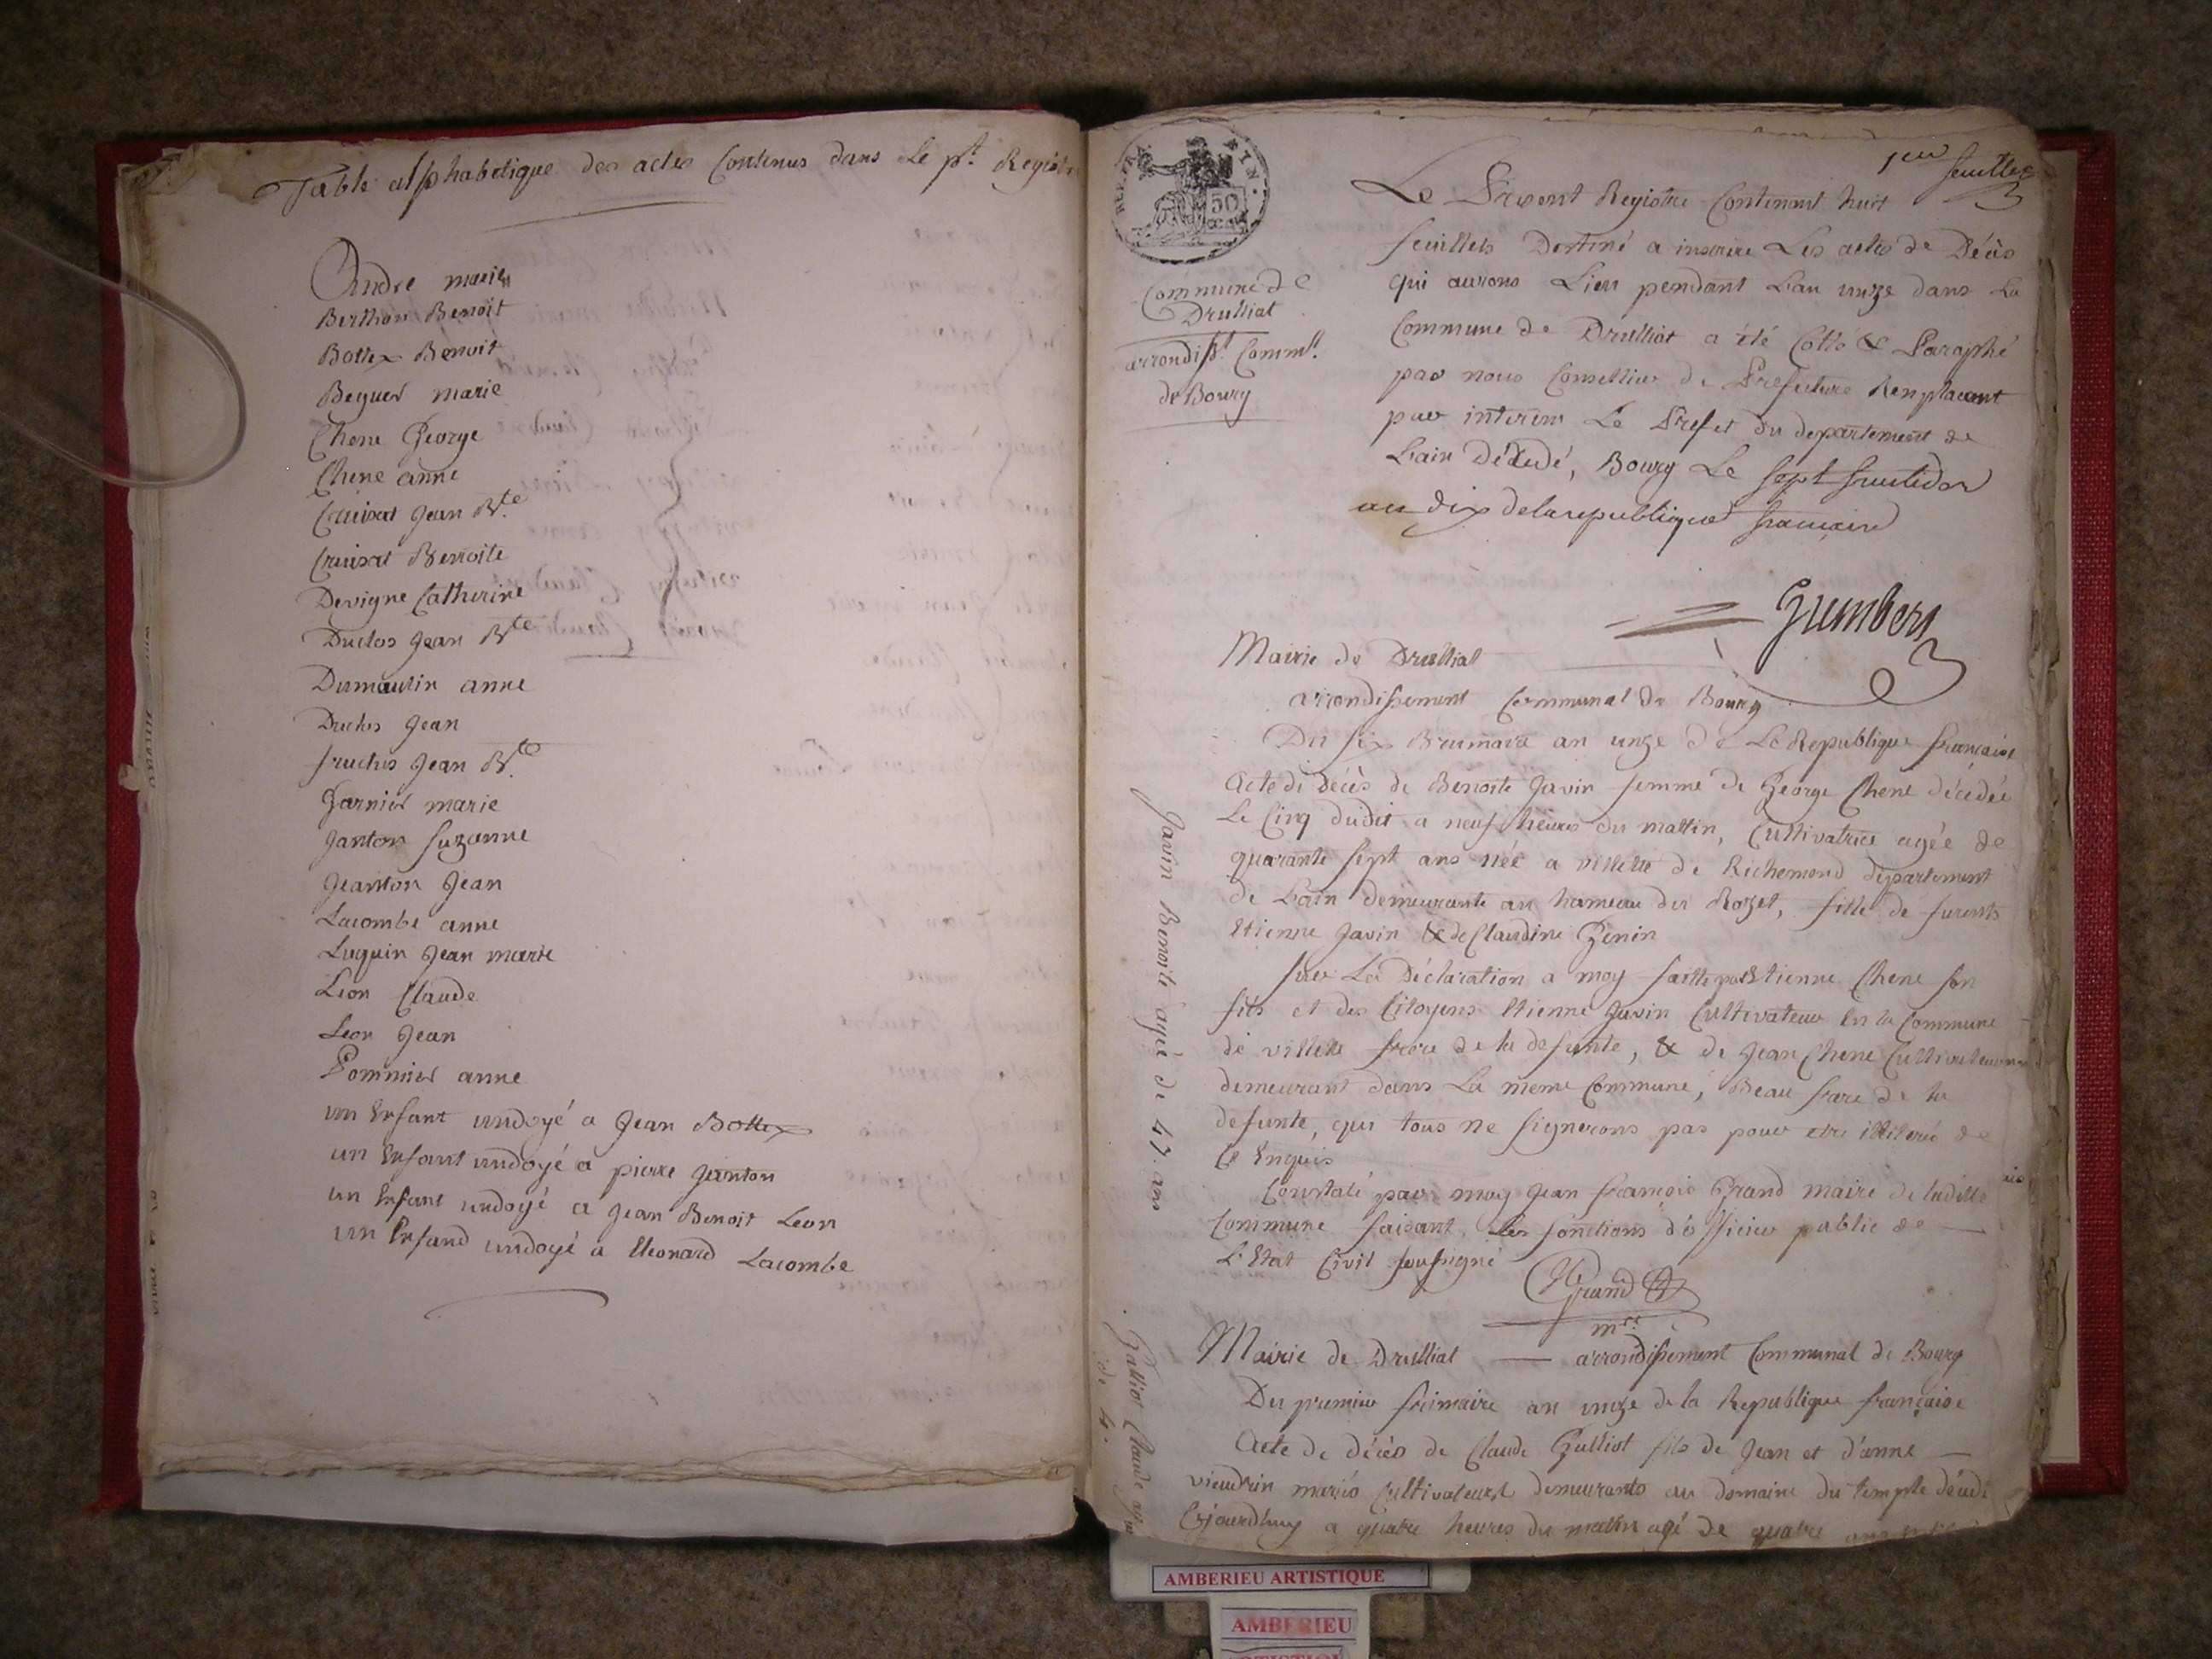 Table alphabetique des actes Contenus dans Le pt. Registre
Andre marie
Berthon Benoit
Bottex Benoit
Beguer marie
Chene George
Chene anne
Cruisat Jean Bte
Cruisat Benoite
Devigne Catherine
Duclos Jean Bte
Dumaulin anne
Duclos Jean
fructus Jean Bte
Garnier marie
Janton Suzanne
Jeanton Jean
Lacombe anne
Luquin Jean marie
Leon Claude
Leon Jean
Pommier anne
un Enfant undoyé a Jean Bottex
un Enfant undoyé a pierre Janton
un Enfant undoyé a Jean Benoit Leon
un Enfand undoyé a Eleonard Lacombe
1er feuillet
REP. FRA. 50 CEN.
Commune de
Druilliat
arrondisst. Comml.
de Bourg
Le Present Registre Contenant huit
feuillets Destiné a inscrire Les actes de Décès
qui aurons Lieu pendant L'an unze dans La
Commune de Druilliat a été Cotté & Paraphé
par nous Conseiller de Prefecture Remplacant
par interim Le Prefet du departement de
L'ain décédé, Bourg Le sept fructidor
an dix de la republique francaise
Mairie de Druilliat
arrondissement Communal de Bourg
Du six Brumaire an unze de La Republique française
Acte de décès de Benoite Javin femme de George Chene décédée
Le Cinq dudit a neuf heures du mattin, Cultivatrice agée de
quarante sept ans née a villette de Richemond departement
de L'ain demeurante au hameau du Rozet, fille de furents
Etienne Javin & de Claudine Genin
sur La Déclaration a moy faitte par Etienne Chene son
fils et des Citoyens Etienne Javin Cultivateur En la Commune
de villette frere de la defunte, & de Jean Chene Cultivateur
demeurant dans La meme Commune, Beau frere de la
defunte, qui tous ne signerons pas pour etre illiteré de
Ce Enquis
Constaté par moy Jean françois Grand maire de laditte
Commune faisant Les fonctions d'officier public de
L'Etat Civil soussigné
Grand
mre
Javin Benoite agée de 47. ans
Mairie de Druilliat — arrondissement Communal de Bourg
Du premier frimaire an unze de la Republique française
Acte de décès de Claude Gulliot fils de Jean et d'anne
vieudrin mariés Cultivateurs demeurants au domaine du temple décédé
Cejourdhuy a quatre heures du matin agé de quatre ans
Gulliot Claude agé
de 4.
AMBERIEU ARTISTIQUE
AMBERIEU
ARTISTIQUE